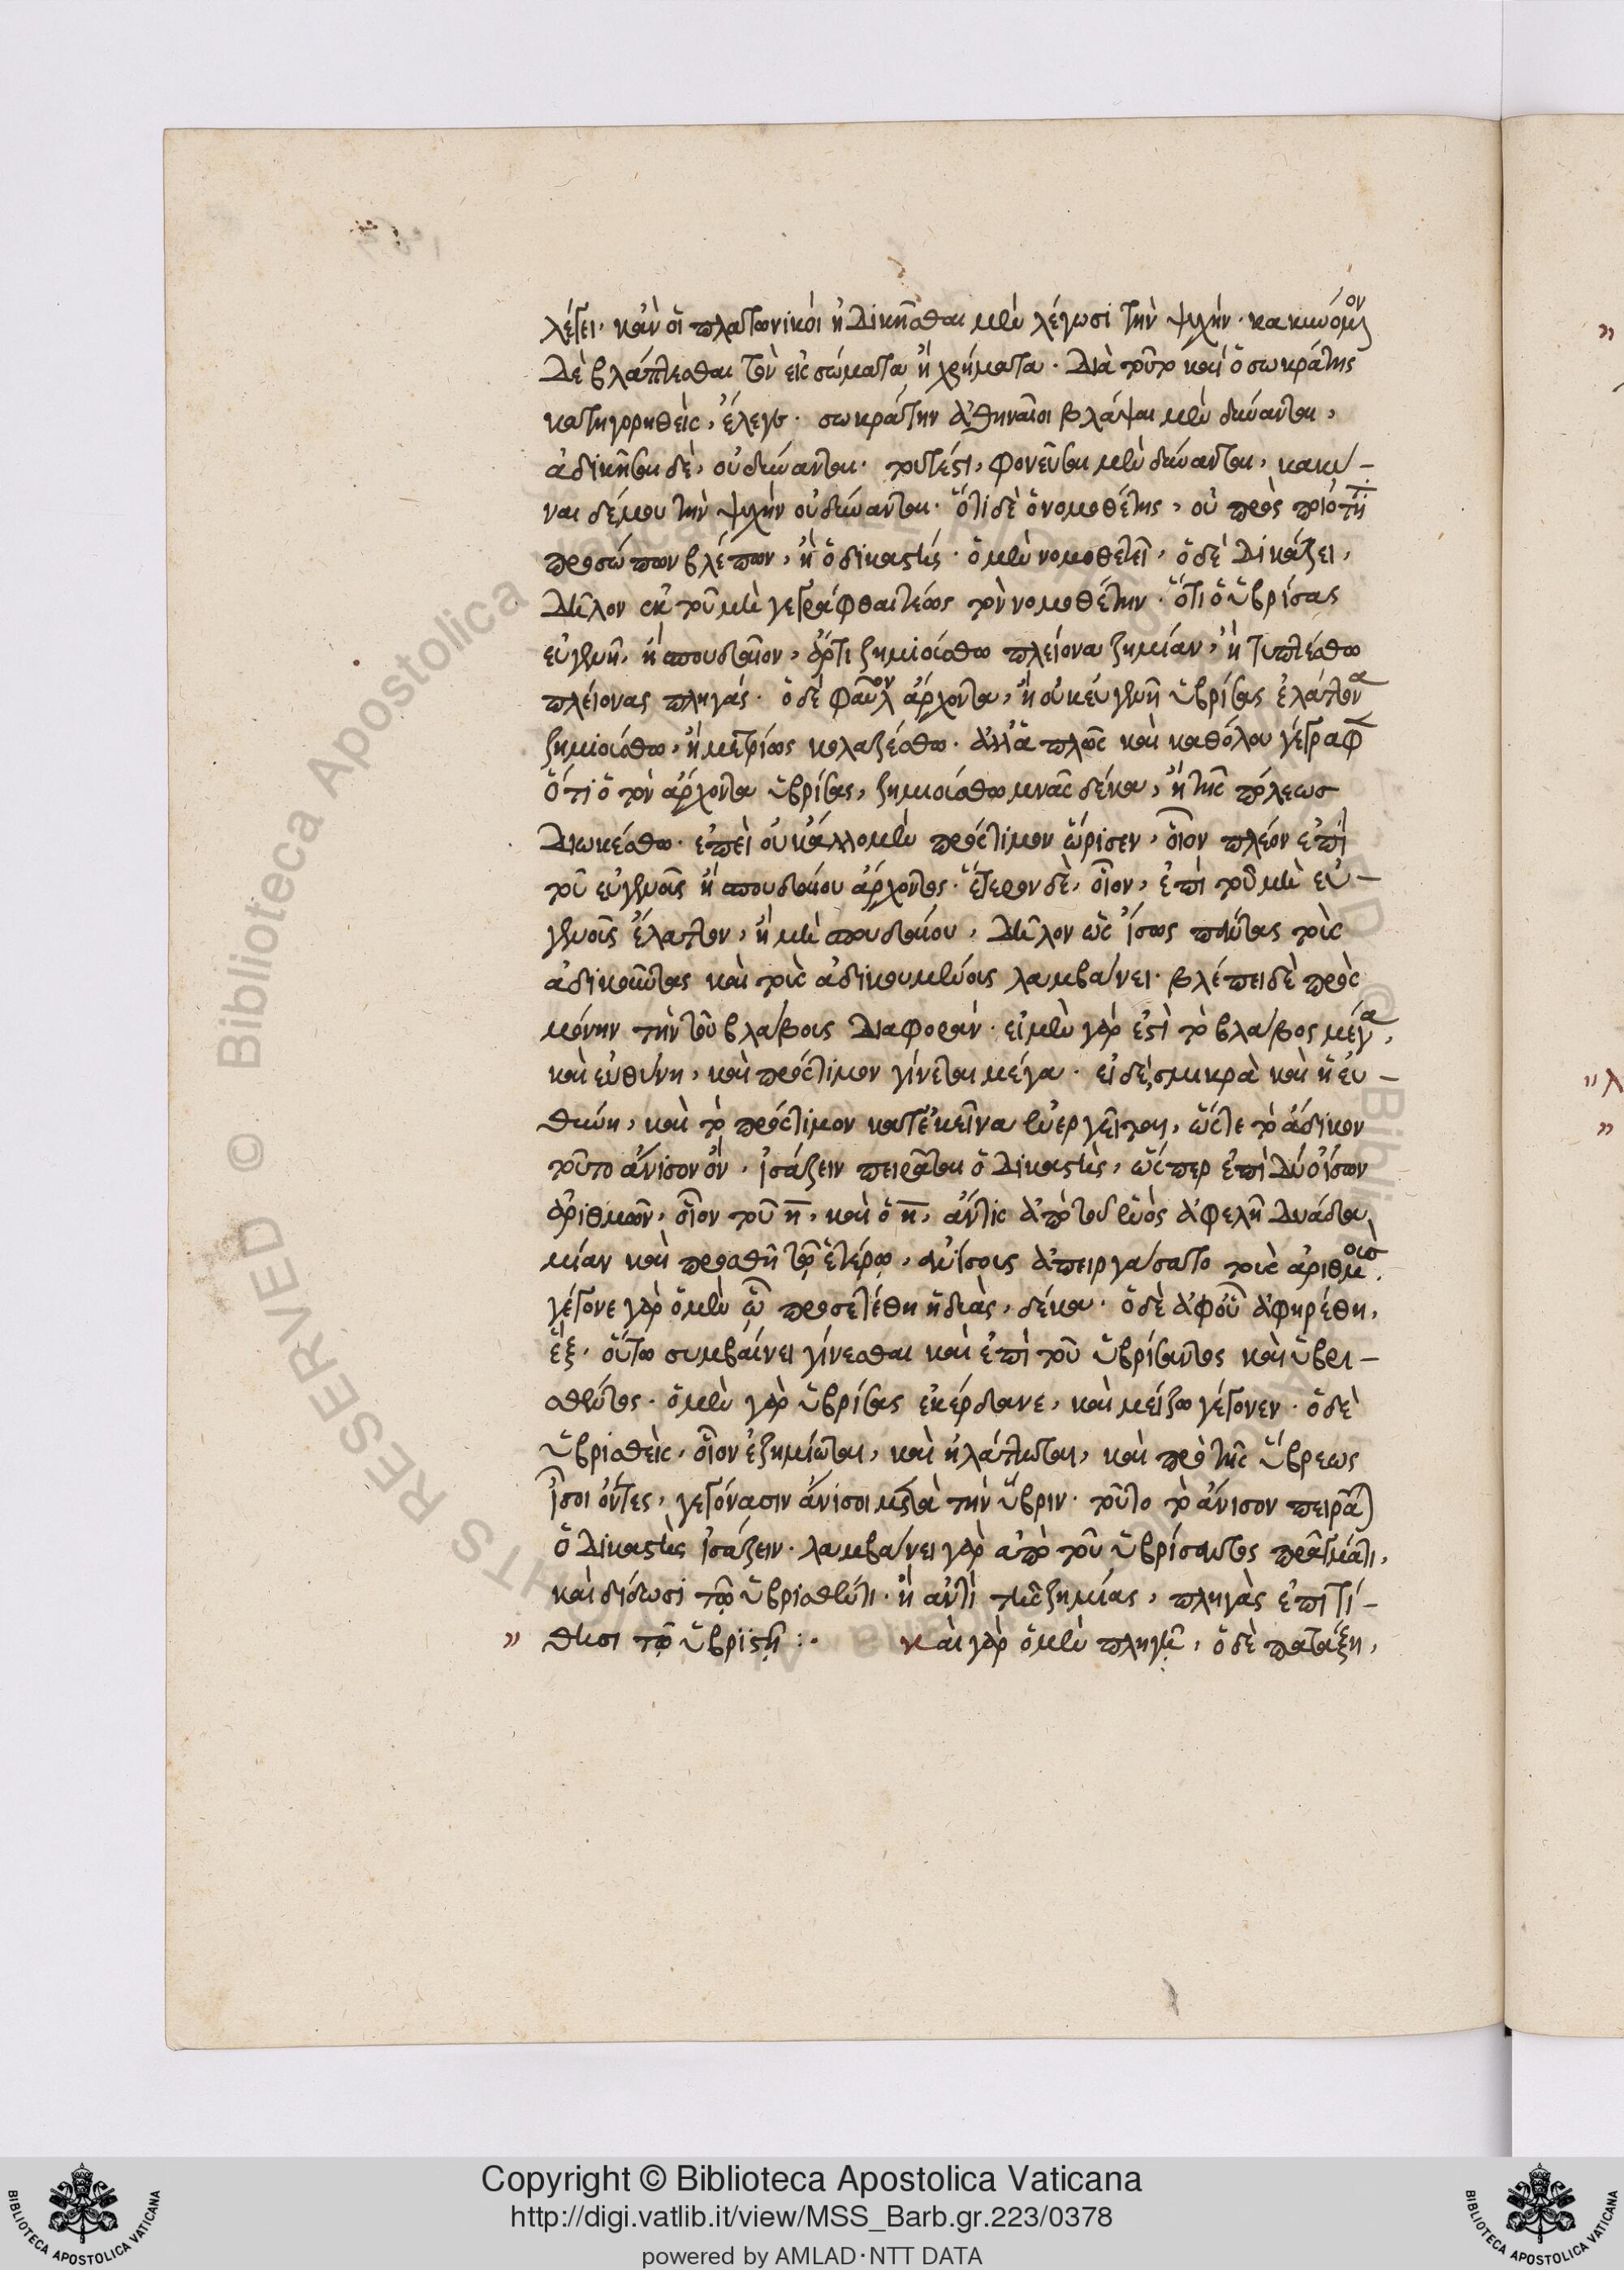 λέγει· κἂν οἱ πλατωνικοὶ ἠδικῆσθαι μὲν λέγωσι τὴν ψυχὴν κακυνόμενον
δὲ βλάπτεσθαι τὸν εἰς σώματα ἢ χρήματα. διὰ τοῦτο καὶ ὁ σωκράτης
κατηγορηθεὶς, ἔλεγε. σωκράτην ἀθηναῖοι βλάψαι μὲν δύνανται,
ἀδικῆσαι δὲ, οὐ δύνανται. τουτέστι, φονεῦσαι μὲν δύνανται, κακῦ-
ναι δέ μου τὴν ψυχὴν οὐ δύνανται. ὅτι δὲ ὁ νομοθέτης, οὐ πρὸς ποιότητα
προσώπων βλέπων, ἢ ὁ δικαστής. ὁ μὲν νομοθετεῖ, ὁ δὲ δικάζει,
δῆλον ἐκ τοῦ μὴ γεγράφθαι πρὸς τὸν νομοθέτην. ὅτι ὁ ὑβρίσας
εὐγενῆ, ἢ σπουδαῖον, ἄρτι ζημιούσθω πλείονα ζημίαν, ἢ τυπτέσθω
πλείονας πληγάς. ὁ δὲ φαῦλον ἄρχοντα, ἢ οὐκ εὐγενῆ ὑβρίσας ἐλάττονα
ζημιούσθω, ἢ μετρίως κολαζέσθω. ἀλλὰ ἁπλῶς καὶ καθόλου γέγραφε
ὅτι ὁ τὸν ἄρχοντα ὑβρίσας, ζημιούσθω μνᾶς δέκα, ἢ τῆς πόλεως
διωκέσθω. ἐπεὶ οὐκ ἄλλο μὲν πρόστιμον ὥρισεν, οἷον πλέον ἐπὶ
τοῦ εὐγενοῦς ἢ σπουδαίου ἄρχοντος. ἕτερον δὲ, οἷον, ἐπὶ τοῦ μὴ εὐ-
γενοῦς ἔλαττον, ἢ μὴ σπουδαίου, δῆλον ὡς ἴσως πάντας τοὺς
ἀδικοῦντας καὶ τοὺς ἀδικουμένους λαμβάνει. βλέπει δὲ πρὸς
μόνην τὴν τοῦ βλάβους διαφοράν. εἰ μὲν γὰρ ἐστὶ τὸ βλάβος μέγα,
καὶ εὐθύνη, καὶ πρόστιμον γίνεται μέγα. εἰ δὲ σμικρὰ καὶ ἡ εὐ-
θύνη, καὶ τὸ πρόστιμον κατ' ἐκεῖνα ἐνεργεῖται, ὥστε τὸ ἄδικον
τοῦτο ἄνισον ὂν, ἰσάζειν πειρᾶται ὁ δικαστὴς, ὥσπερ ἐπὶ δύο ἴσων
ἀριθμῶν, οἷον τοῦ η, καὶ ὁ η, ἄν τις ἀπὸ τοῦ ἑνὸς ἀφελῇ δυάδα
μίαν καὶ προσθῇ τῷ ἑτέρῳ, ἀνίσους ἀπειργάσατο τοὺς ἀριθμούς.
γέγονε γὰρ ὁ μὲν ᾧ προσετέθη ἡ δυὰς, δέκα. ὁ δὲ ἀφ' οὗ ἀφηρέθη,
ἕξ. οὕτω συμβαίνει γίνεσθαι καὶ ἐπὶ τοῦ ὑβρίσαντος καὶ ὑβρι-
σθέντος. ὁ μὲν γὰρ ὑβρίσας ἐκέρδανε, καὶ μείζω γέγονεν. ὁ δὲ
ὑβρισθεὶς, οἷον ἐζημίωται, καὶ ἠλάττωται, καὶ πρὸ τῆς ὕβρεως
ἴσοι ὄντες, γεγόνασιν ἄνισοι μετὰ τὴν ὕβριν. τοῦτο τὸ ἄνισον πειρᾶται
ὁ δικαστὴς ἰσάζειν. λαμβάνει γὰρ ἀπὸ τοῦ ὑβρίσαντος πράγματι,
καὶ δίδωσι τῷ ὑβρισθέντι. ἢ ἀντὶ τῆς ζημίας, πληγὰς ἐπιτί-
" θησι τῷ ὑβριστῇ :. καὶ γὰρ ὁ μὲν πληγῇ, ὁ δὲ πατάξῃ,
Copyright © Biblioteca Apostolica Vaticana
http://digi.vatlib.it/view/MSS_Barb.gr.223/0378
powered by AMLAD·NTT DATA
BIBLIOTECA APOSTOLICA VATICANA
BIBLIOTECA APOSTOLICA VATICANA